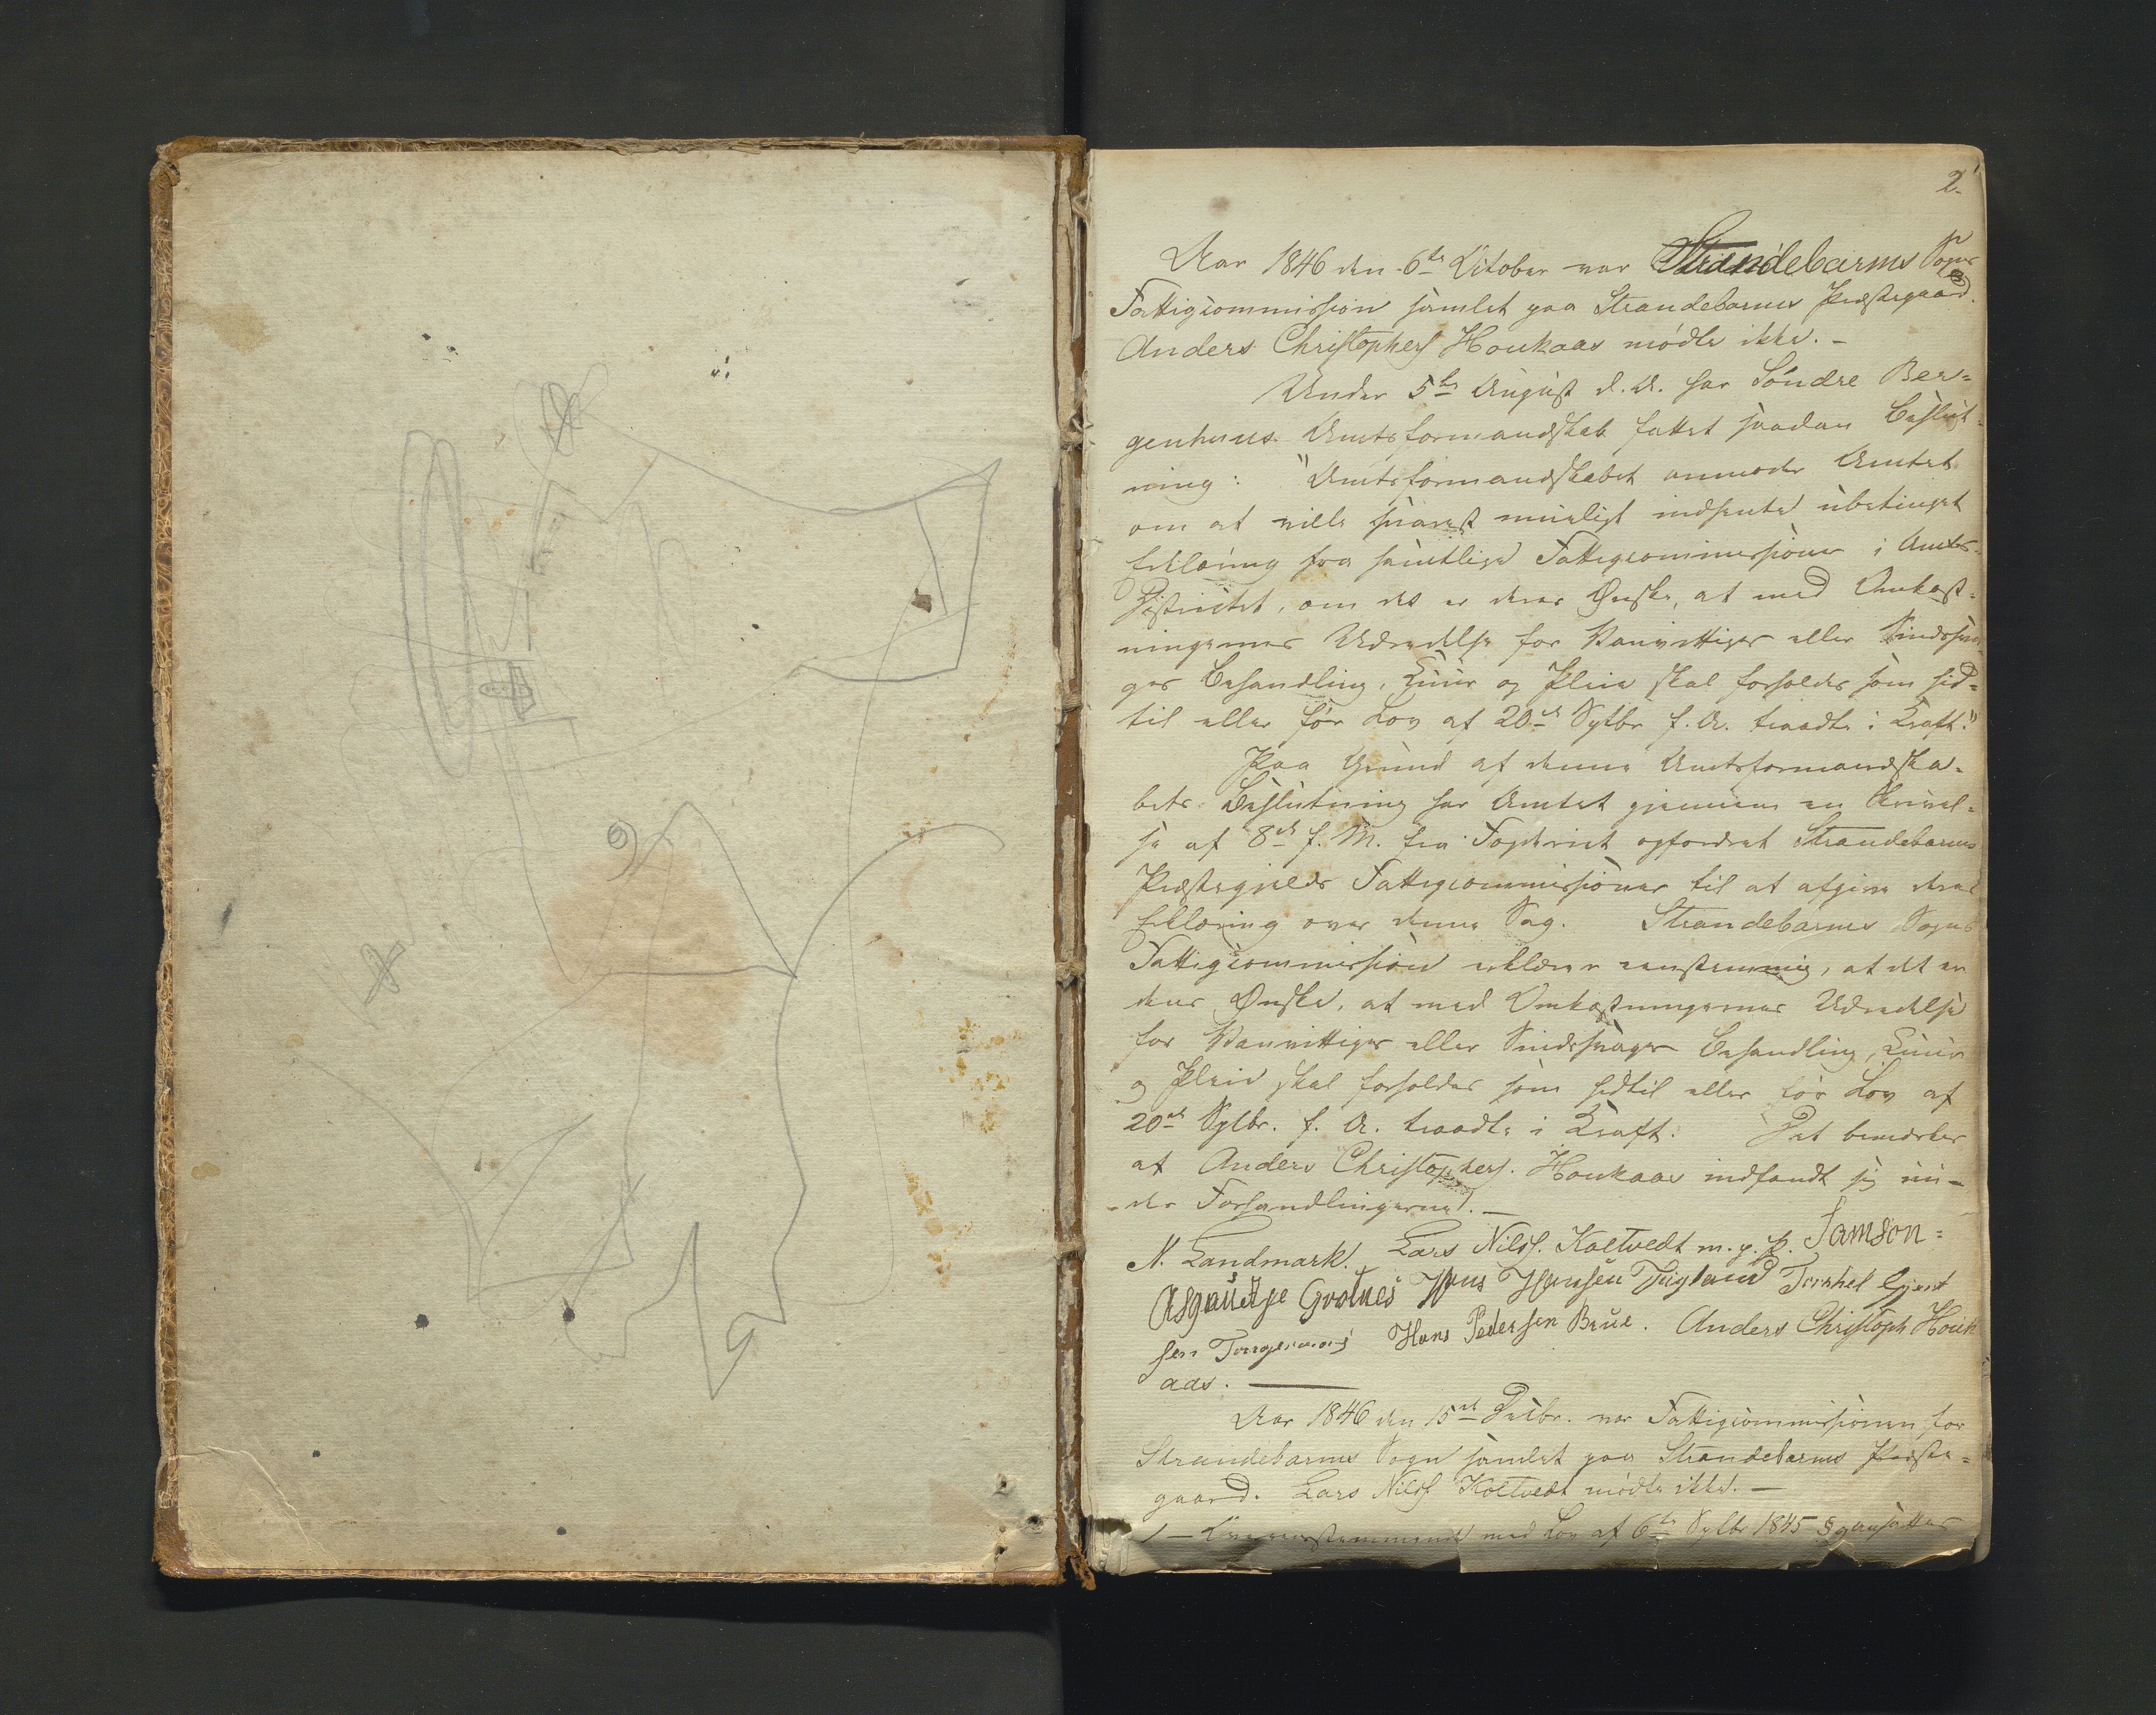 2.
Aar 1846 den 6te October var Strandebarms Sogns
Fattigcommission samlet paa Strandebarms Præstegaard.
Anders Christophers. Houkaas mødte ikke. –
Under 5te August d. A. har Søndre Ber-
genhuus Amtsformandskab fattet saadan Beslut-
ning: "Amtsformandskabet anmoder Amtet
om at ville snarest mueligt indhente ubetinget
Erklæring fra samtlige Fattigcommissioner i Amts-
Districtet, om det er deres Ønske, at med Omkost-
ningernes Udredelse for Vanvittiges eller Sindssva-
ges Behandling, Cuur og Pleie skal forholdes som hid-
til eller før Lov af 20de Sptbr f. A. traadte i Kraft."
Paa Grund af denne Amtsformandska-
bets Beslutning har Amtet gjennem en Skrivel-
se af 8de f. M. fra Fogderiet opfordret Strandebarms
Præstegjelds Fattigcommissioner til at afgive deres
Erklæring over denne Sag. Strandebarms Sogns
Fattigcommission erklærer eenstemmig, at det er
dens Ønske, at med Omkostningernes Udredelse
for Vanvittiges eller Sindssvages Behandling, Cuur
og Pleie skal forholdes som hidtil eller før Lov af
20de Sptbr. f. A. traadte i Kraft. Det bemærkes
at Anders Christophers. Houkaas indfandt sig un-
der Forhandlingerne. –
N. Landmark. Lars Nilss. Koltvedt m. p. P. Samson-
Hans Hansen Tuigland Torkel Gjert
sen Hans Pedersen Brue. Anders Christoph Houk
aas.
Aar 1846 den 15de Decbr. var Fattigcommissionen for
Strandebarms Sogn samlet paa Strandebarms Præste-
gaard. Lars Nilss. Koltvedt mødte ikke. –
1 – Overeensstemmende med Lov af 6te Sptbr 1845 § ansattes